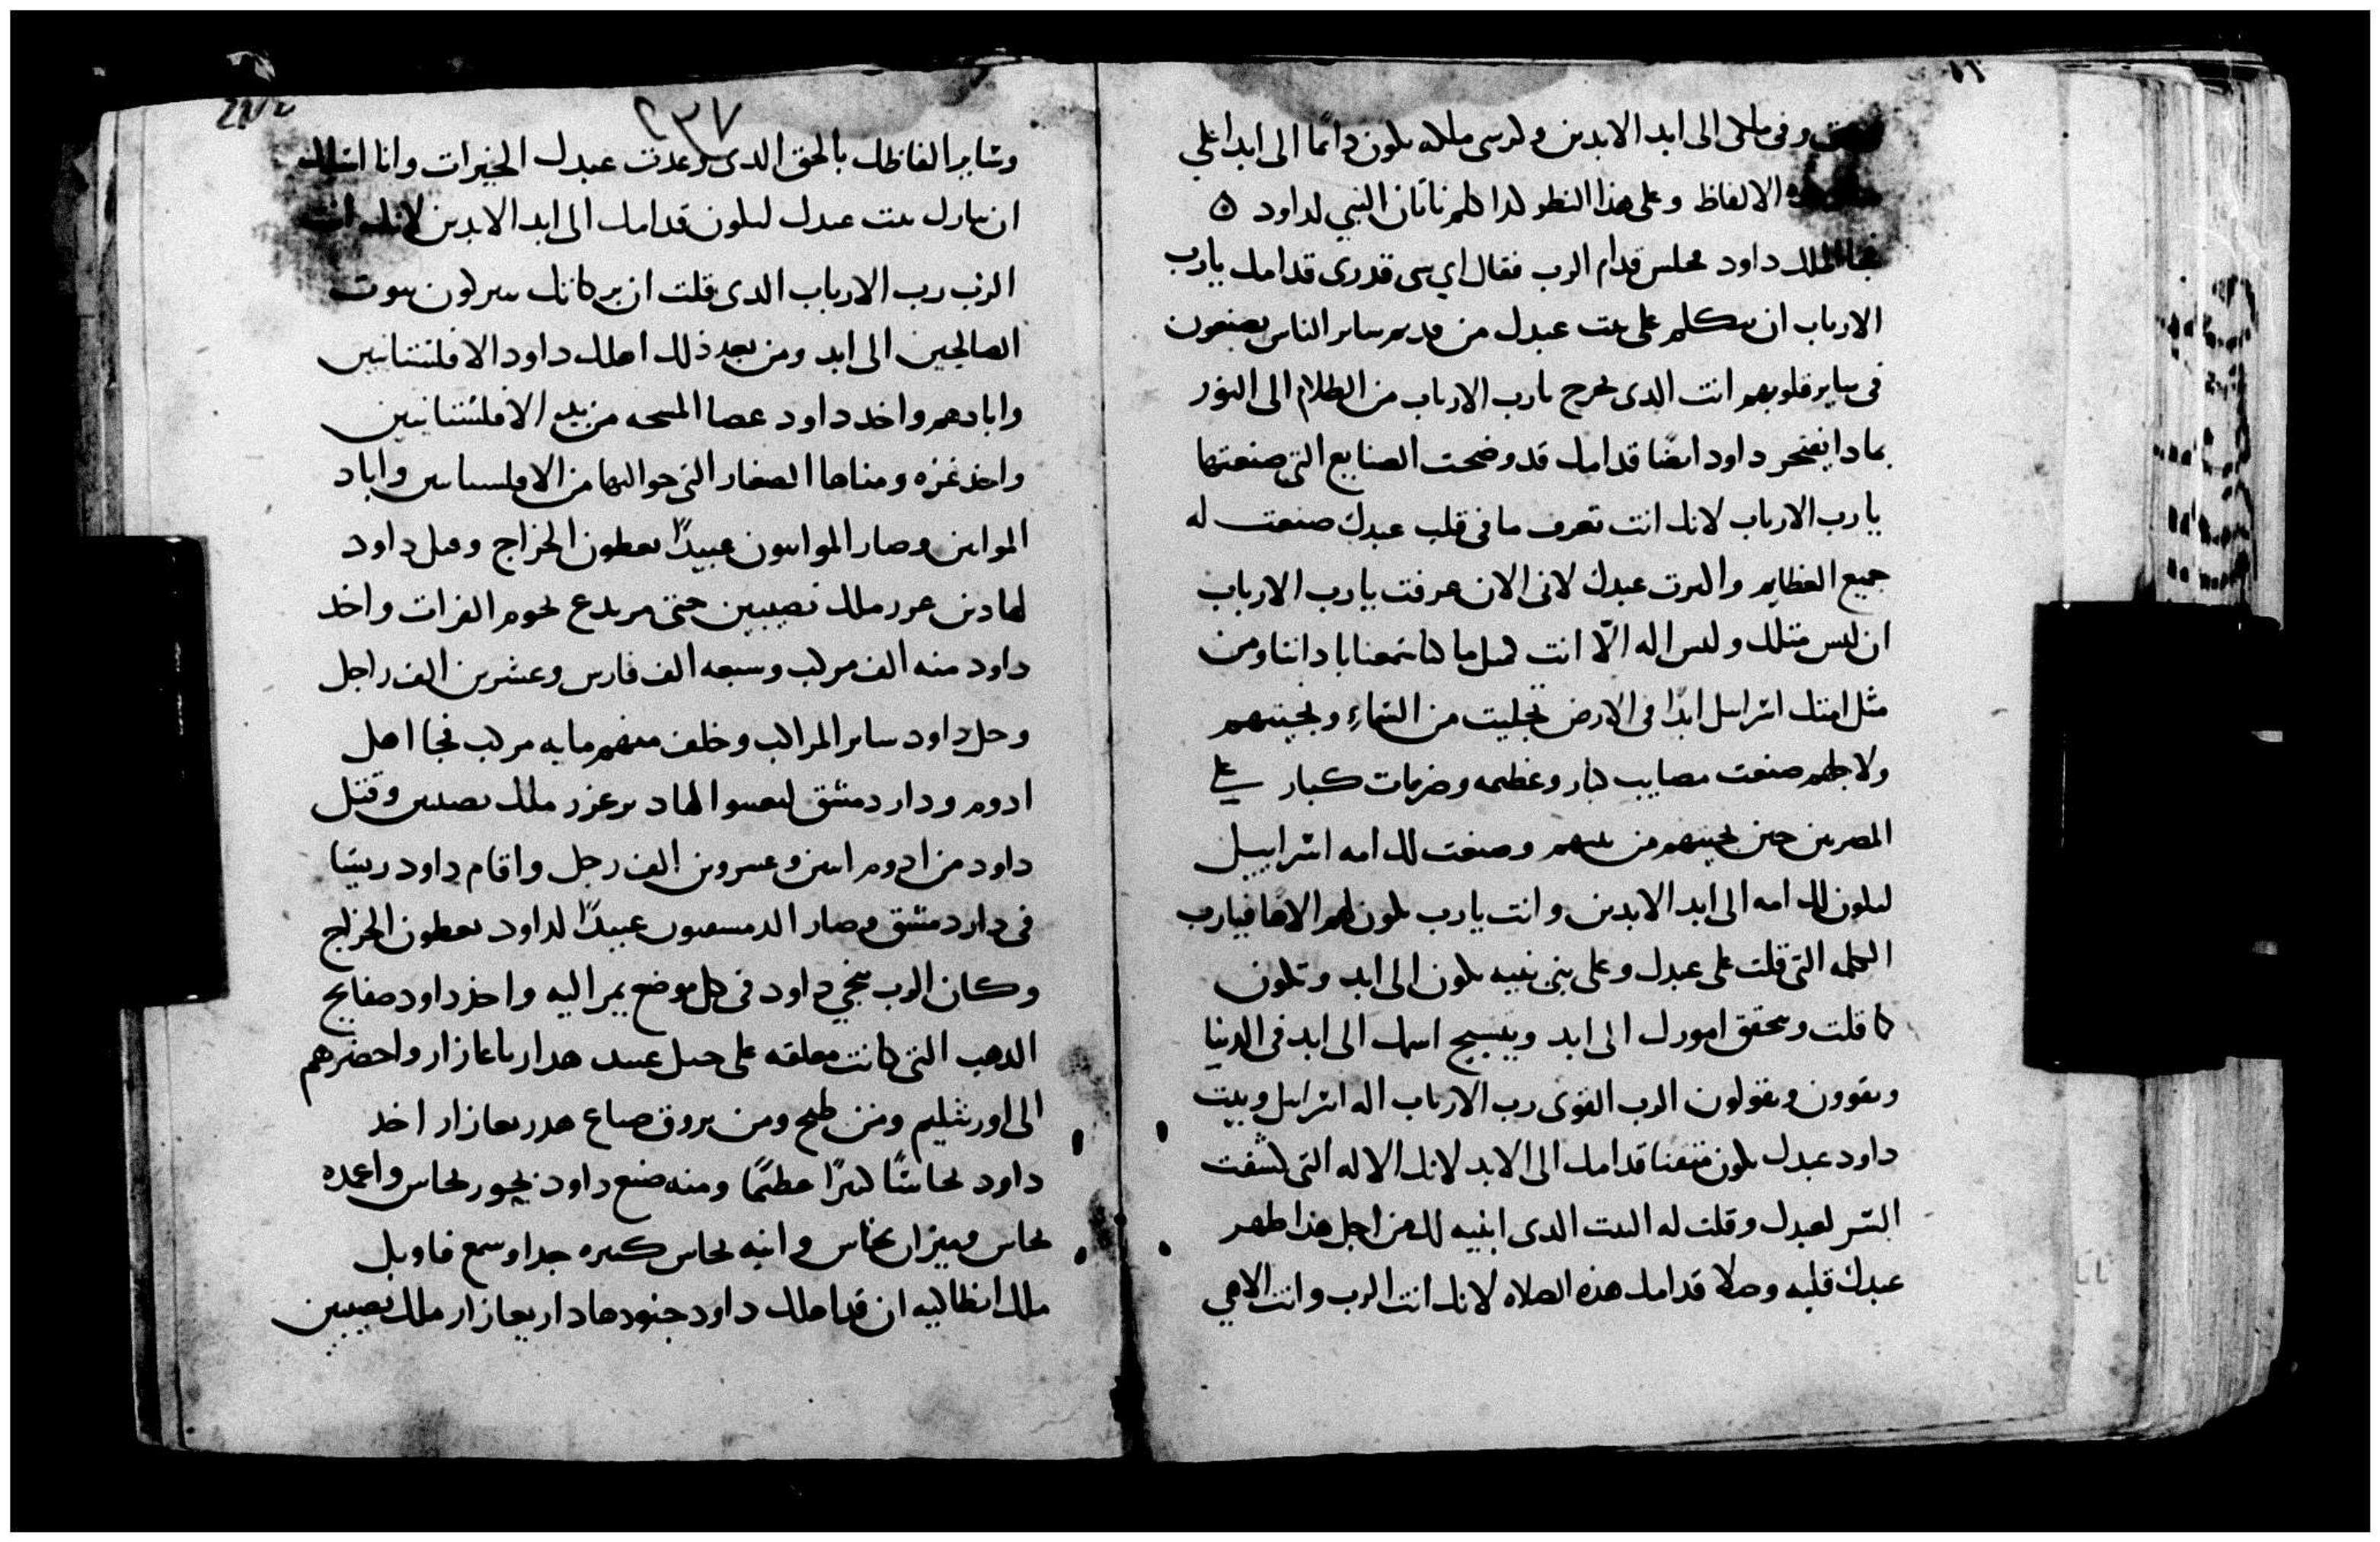 وفى ملكى الى ابد الابدين وكرسى ملكه يكون دائمًا الى ابد اعلى
الالفاظ وعلى هذا النظر كدا كلم ناتان النبي لداود ٥
الملك داود مجلس قدام الرب فقال اي شى قدرى قدامك يارب
الارباب ان تتكلم على بيت عبدك من قديم ساير الناس يصنعون
فى ساير قلوبهم انت الدى تخرج يارب الارباب من الظلام الى النور
بمادا يفتخر داود ايضًا قدامك قد وضحت الصنايع التى صنعتها
يارب الارباب لانك انت تعرف ما فى قلب عبدك صنعت له
جميع العظايم واكثرت عبدك لانى الان عرفت يارب الارباب
ان ليس متلك وليس اله الّا انت كمثل ما كنا سمعنا باداننا ومن
مثل امتك اسرايل ابدًا فى الارض تجليت من السماء ونجيتهم
ولاجلهم صنعت مصايب كبار وعظيمه وضربات كبار على
المصريين حين نجيتهم من بينهم وصنعت لك امه اسراييل
ليكون لك امه الى ابد الابدين وانت يارب تكون لهم الاهًا فيارب
الكلمه التى قلت على عبدك وعلى بنى بنيه تكون الى ابد وتكون
كما قلت وتحقق امورك الى ابد ويتسبح اسمك الى ابد فى الدنيا
ويقوون ويقولون الرب القوى رب الارباب اله اسرايل وبيت
داود عبدك يكون متقنا قدامك الى الابد لانك الاله التى كشفت
السر لعبدك وقلت له البيت الدى ابنيه لك من اجل هذا طهر
عبدك قلبه وصلا قدامك هذه الصلاه لانك انت الرب وانت الاهى
٢٣٧
وساير الفاظك بالحق الدى وعدت عبدك الخيرات وانا اسالك
ان تبارك بيت عبدك ليكون قدامك الى ابد الابدين لانك انت
الرب رب الارباب الدى قلت ان بركاتك ستكون بيوت
الصالحين الى ابد ومن بعد ذلك اهلك داود الافلستانيين
وابادهم واخد داود عصا المسحه من يد الافلستانيين
واخذ غزه ومناها الصغار التى حواليها من الافلستانيين واباد
الموابين وصار الموابيون عبيدًا يعطون الخراج وقتل داود
لهادن عزر ملك نصيبين حتى مر يدع تخوم الفرات واخد
داود منه الف مركب وسبعه الف فارس وعشرين الف راجل
وحل داود ساير المراكب وخلف منهم مايه مركب فجا اهل
ادوم ودار دمشق ليعينوا لهادر عزر ملك نصيبين وقتل
داود من ادوم اثنين وعشرين الف رجل واقام داود ريسًا
فى دار دمشق وصار الدمسقيون عبيدًا لداود يعطون الخراج
وكان الرب ينجي داود فى كل موضع يمر اليه واخذ داود صفايح
الدهب التى كانت معلقه على خيل عبيد هداريا عازار واحضرهم
الى اورشليم ومن طبح ومن بروق صباع هدريعازار اخد
داود نحاسًا كثيرًا عظيمًا ومنه صنع داود بحور نحاس واعمده
نحاس وميزان نحاس وانيه نحاس كثيره جدا وسمع فاوبل
ملك انطاكيه ان قد اهلك داود جنود هاداريعازار ملك نصيبين